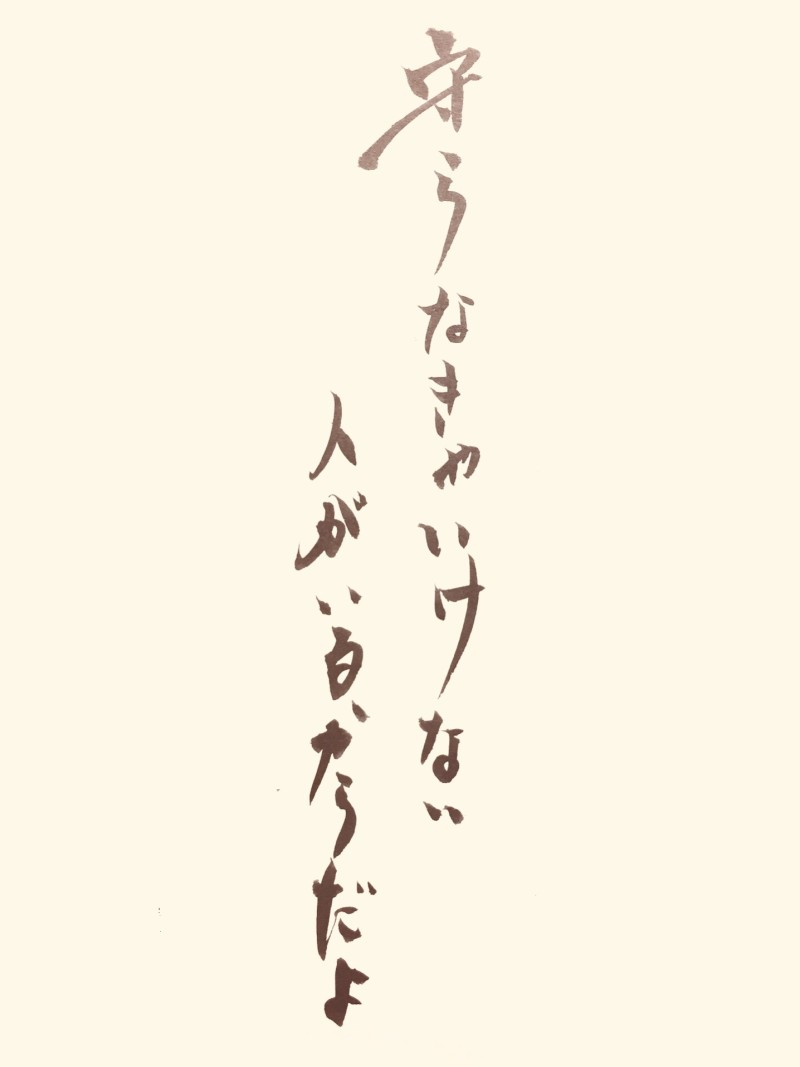 守らなきゃいけない
人がいるからだよ